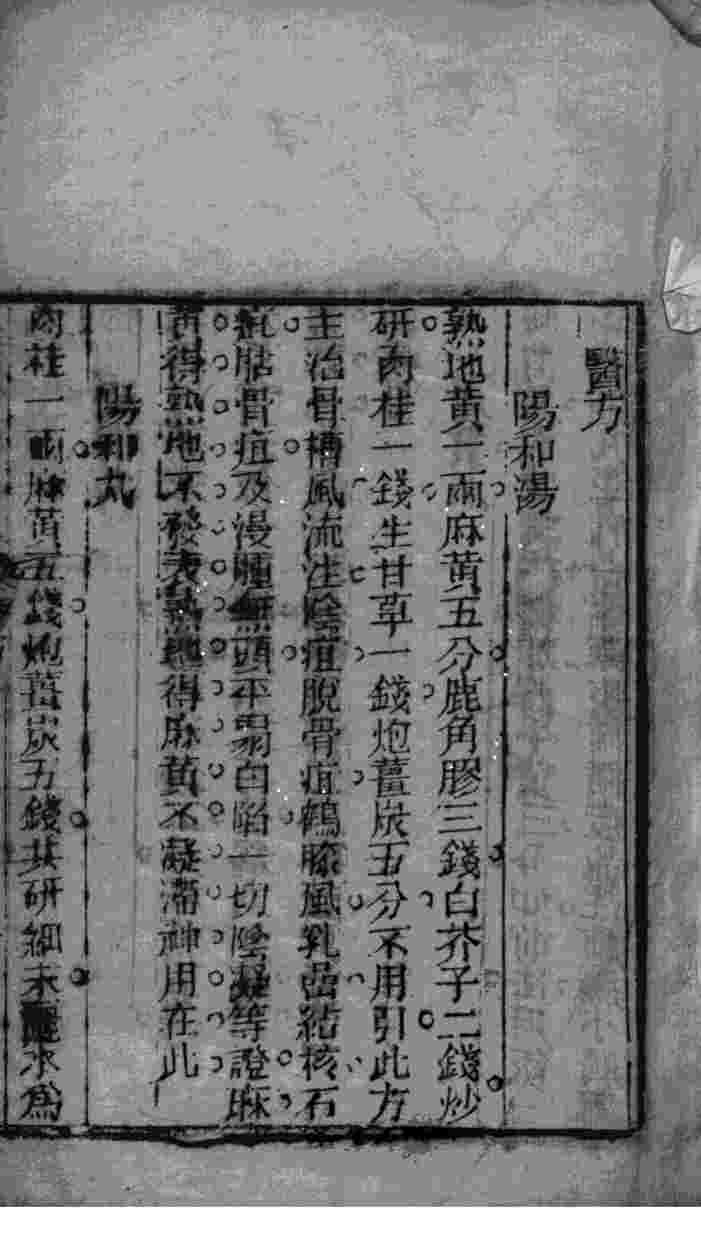 醫方
陽和湯
熟地黃一兩麻黃五分鹿角膠三錢白芥子二錢炒
研肉桂一錢生甘草一錢炮薑炭五分不用引此方
主治骨槽風流注陰疽脫骨疽鶴膝風乳岩結核石
疽貼骨疽及漫腫無頭平塌白陷一切陰凝等證麻
黃得熟地不發表熟地得麻黃不凝滯神用在此
陽和丸
肉桂一兩麻黃五錢炮薑炭五錢共研細末醒水為